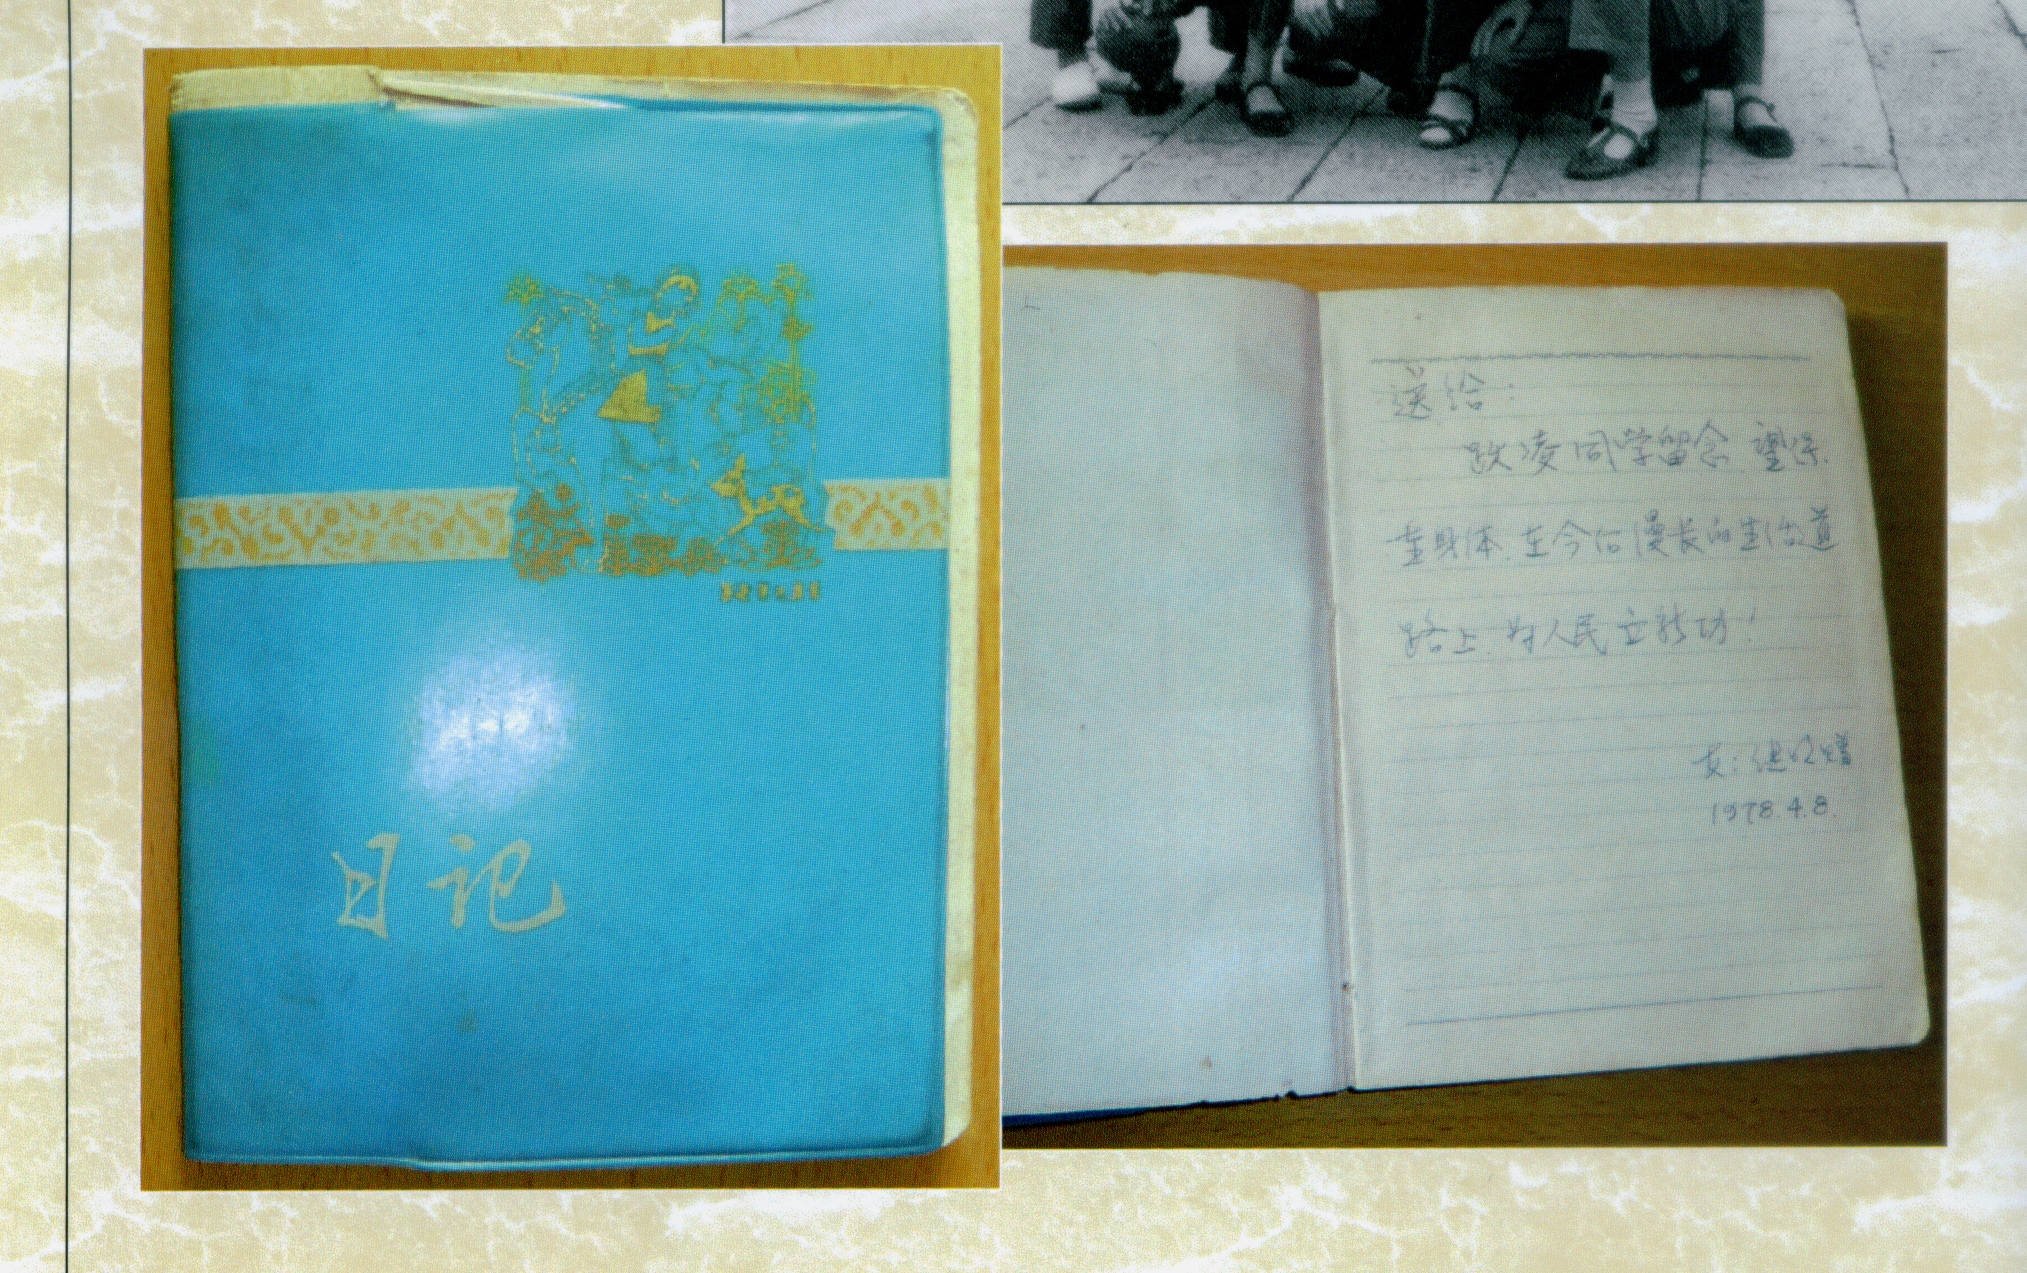 日记
送给：
跃凌同学留念.望保.
重身体.在今后漫长的生活道
路上.为人民立新功！
友：继明赠
1978.4.8.